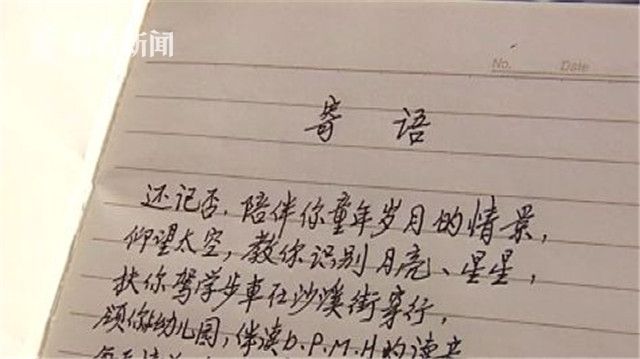 新闻
No.
Date
寄语
还记否,陪伴你童年岁月的情景,
仰望太空,教你识别月亮、星星,
扶你驾学步車在沙溪街穿行,
领你幼儿园,伴读b.P.M.H的读音